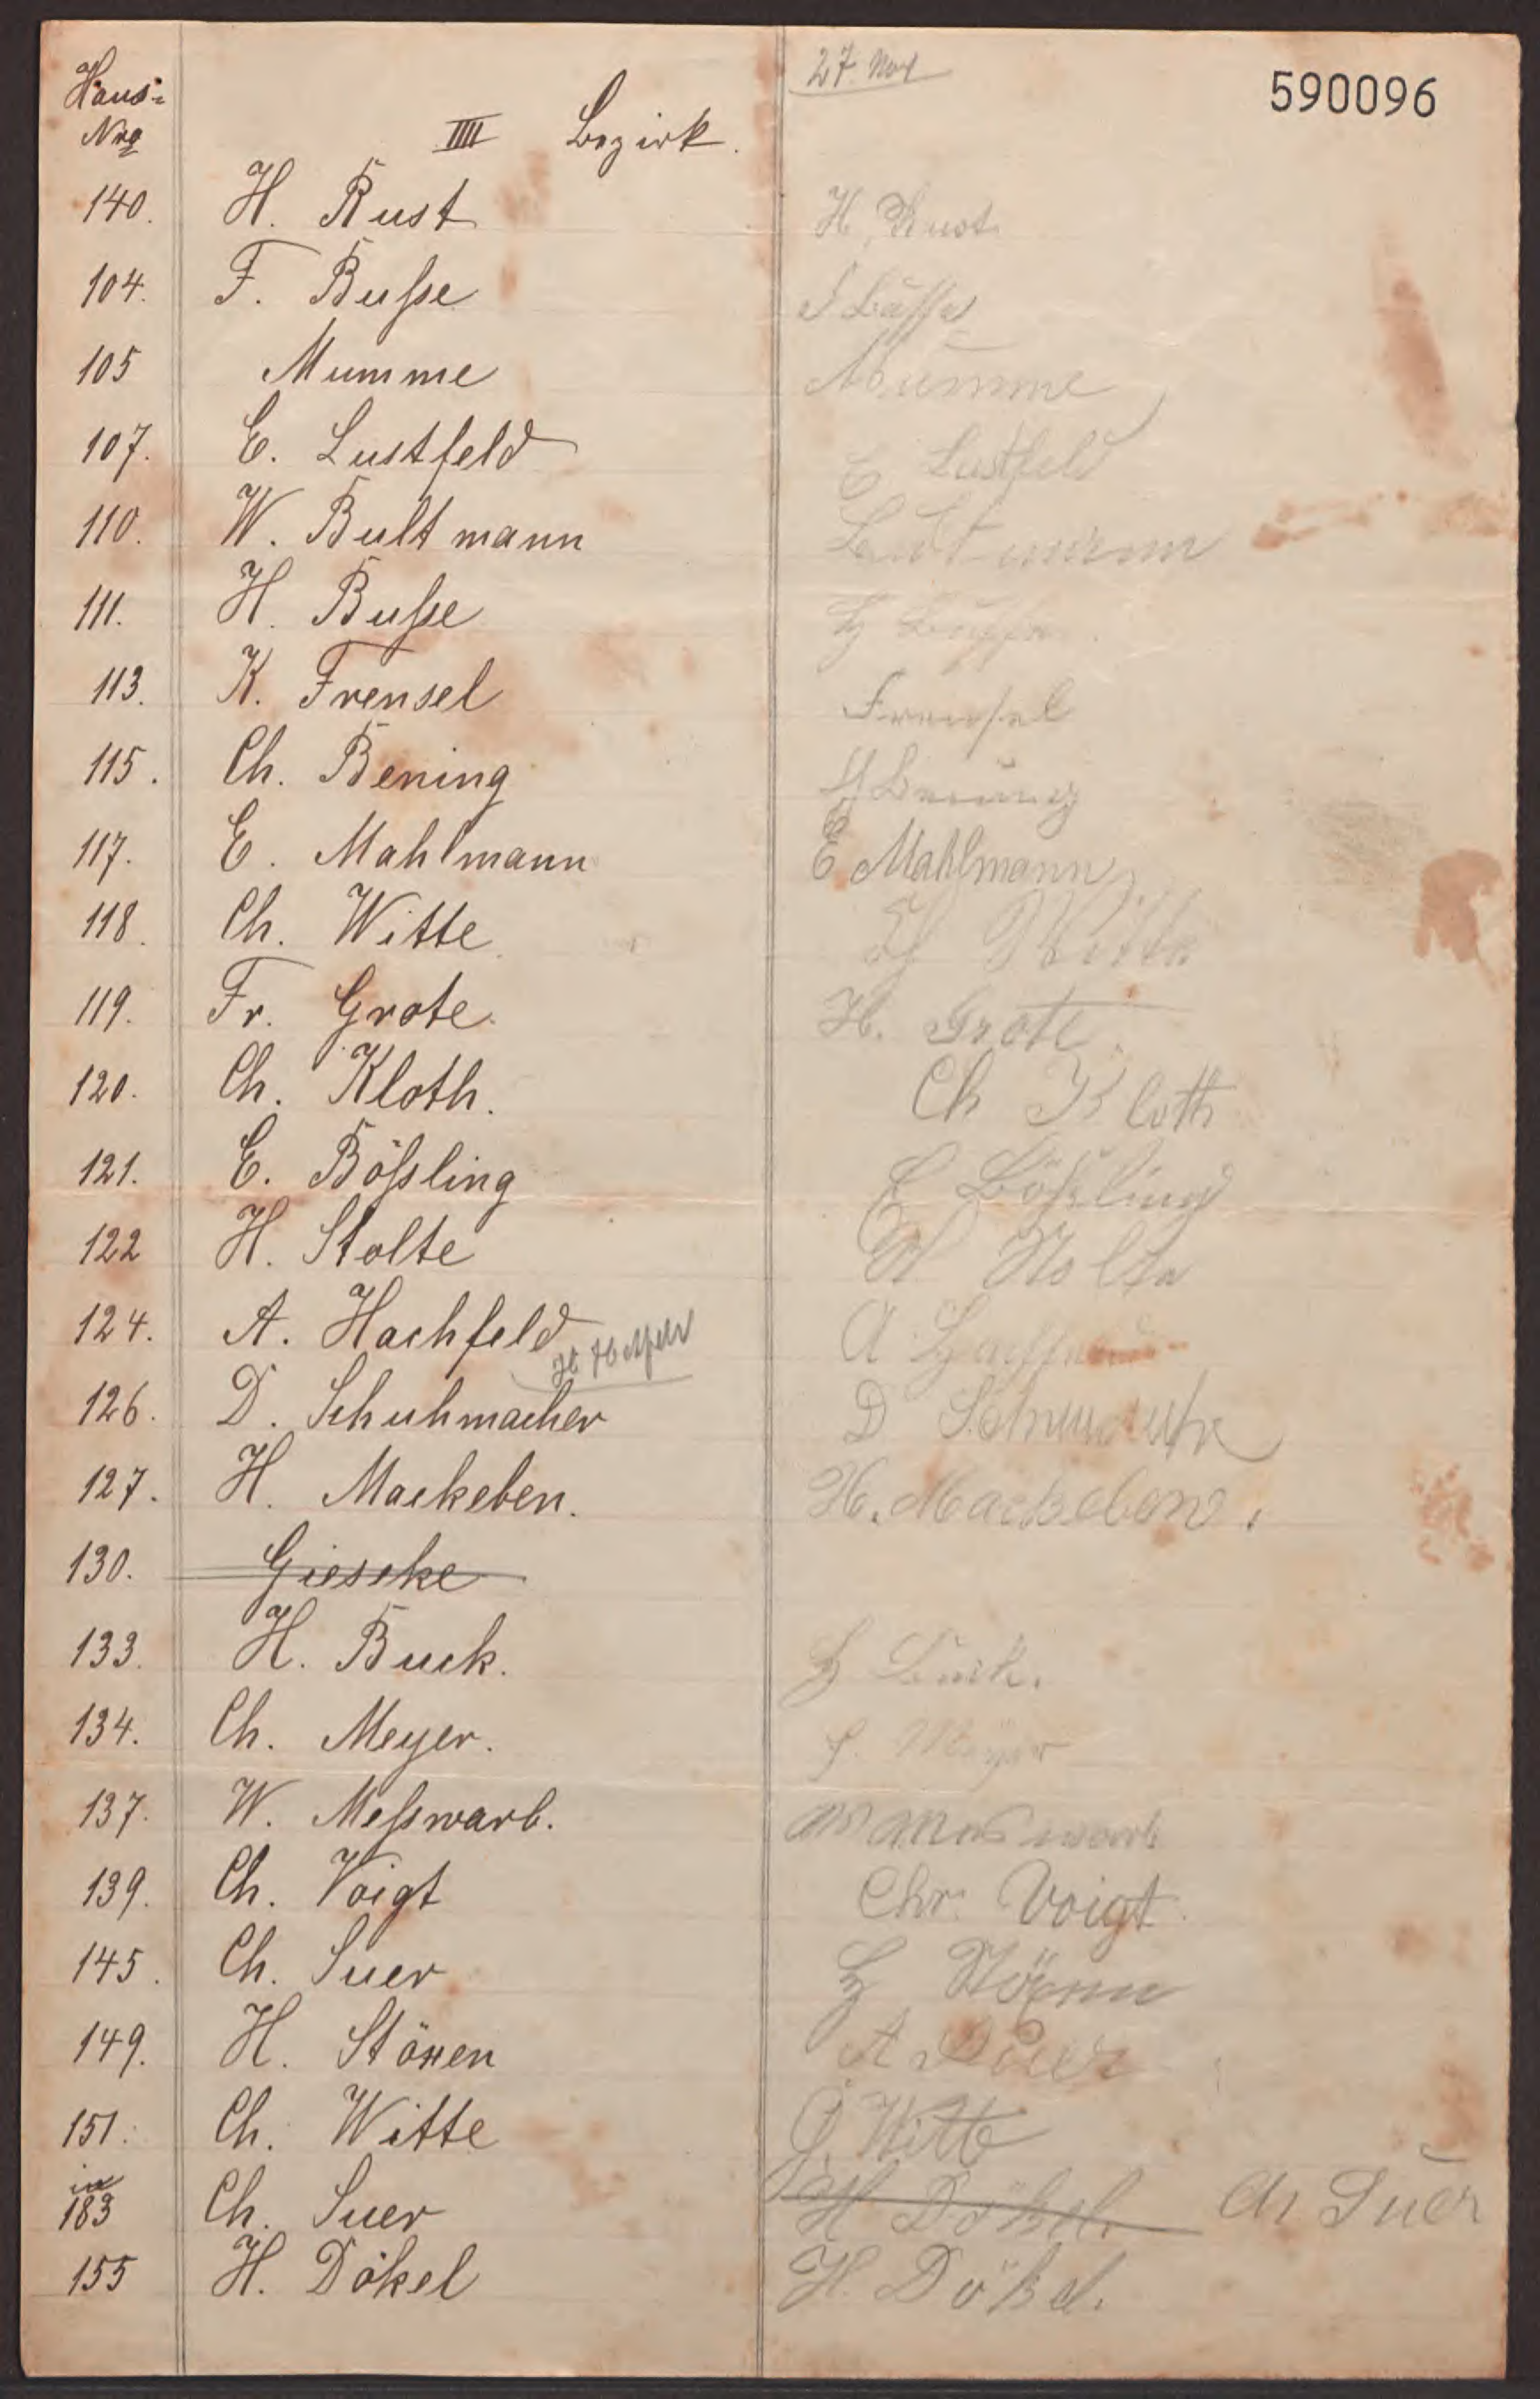 27. Nov
590096
Haus-
Nro
IIII Bezirk.
140. H. Rust H. Rust
104. F. Buſse F Buſse
105 Mumme Mumme
107. E. Lustfeld E Lustfeld
110. W. Bultmann Bultmann
111. H. Buſse H Buſse
113. K. Frensel Frensel
115. Ch. Bening Bening
117. E. Mahlmann E Mahlmann
118. Ch. Witte Witte
119. Fr. Grote. H. Grote
120. Ch. Kloth. Ch Kloth
121. E. Böſsling E Böſsling
122 H. Stolte H Stolte
124. A. Hachfeld A
126. D. Schuhmacher D
127. H. Mackeben. H. Mackeben.
130. Gieseke
133. H. Buck. H Buck.
134. Ch. Meyer. Meyer
137. W. Meſswarb. W Messwarb
139. Ch. Voigt Chr. Voigt.
145. Ch. Suer H Stöxen
149. H. Stöxen A Suer
151. Ch. Witte Witte
183 Ch. Suer H Dökel. Ch Suer
155 H. Dökel H. Dökel.